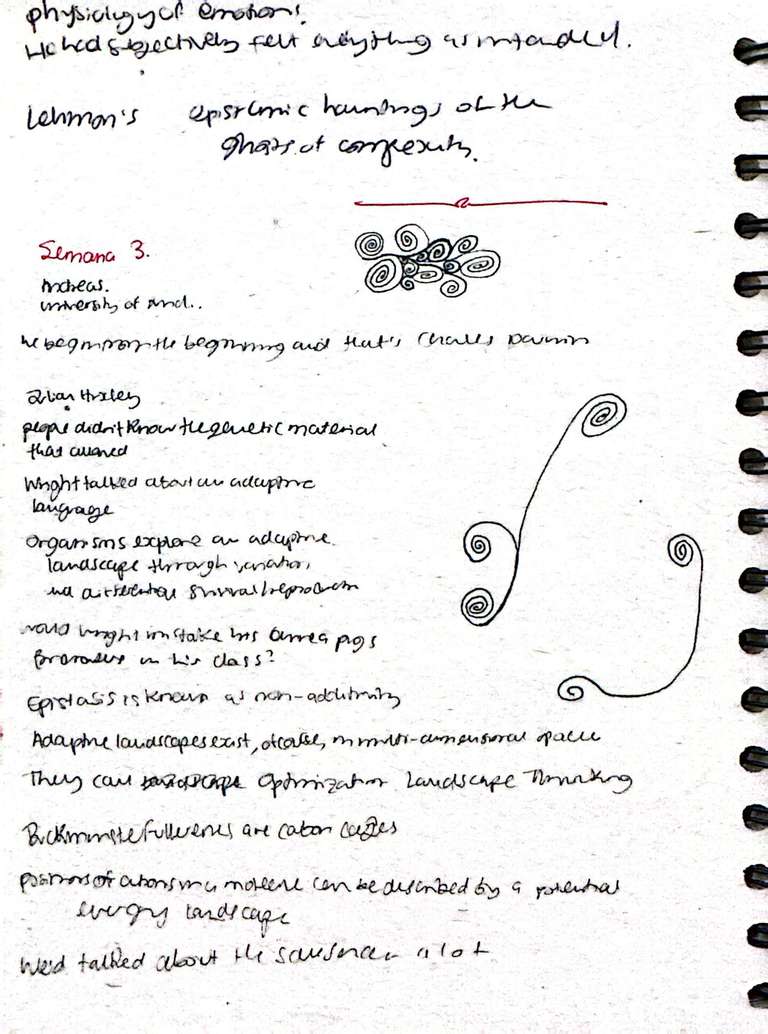 physiology of emotions.
He had subjectively felt everything as intended.
Lehman's epistemic hauntings of the
ghosts of complexity.
Semana 3.
Andreas.
University of
We begin from the beginning and that's Charles Darwin
Julian Huxley
people didn't know the genetic material
that allowed
Wright talked about an adaptive
language
Organisms explore an adaptive
landscape through variation,
and differential survival/reproduction
would Wright mistake his Guinea pigs
for erasers in his class?
Epistasis is known as non-additivity
Adaptive landscapes exist, of course, in multi-dimensional space
They call Optimization Landscape Thinking
Buckminsterfullerenes are carbon cages
positions of atoms in a molecule can be described by a potential
energy landscape
We'd talked about the salesman a lot